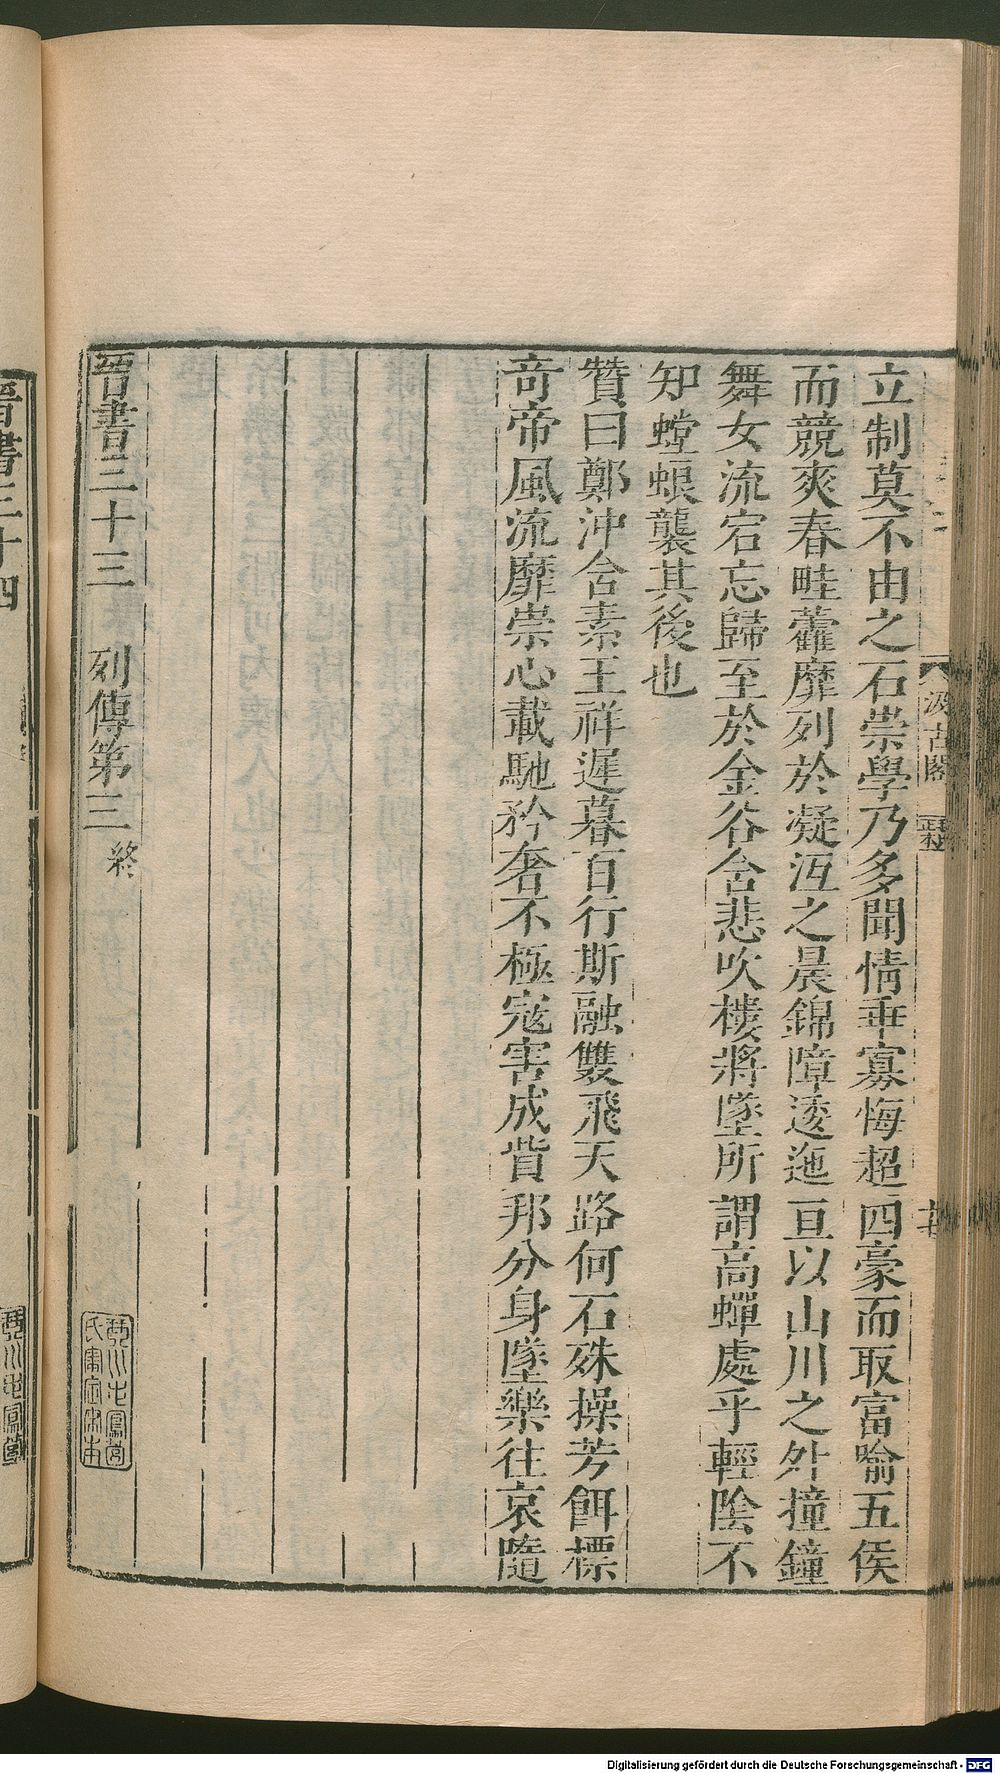 立制莫不由之石崇學乃多聞情乖寡悔超四豪而取富喻五侯
而競爽春畦藿靡列於凝沍之晨錦障逶迤亘以山川之外撞鐘
舞女流宕忘歸至於金谷含悲吹樓將墜所謂高蟬處乎輕陰不
知螳螂襲其後也
贊曰鄭沖含素王祥遲暮百行斯融雙飛天路何石殊操芳餌標
奇帝風流靡崇心載馳矜奢不極寇害成貲邦分身墜樂往哀隨
晉書三十三 列傳第三終
汲古閣
晉書三十四
Digitalisierung gefördert durch die Deutsche Forschungsgemeinschaft - DFG